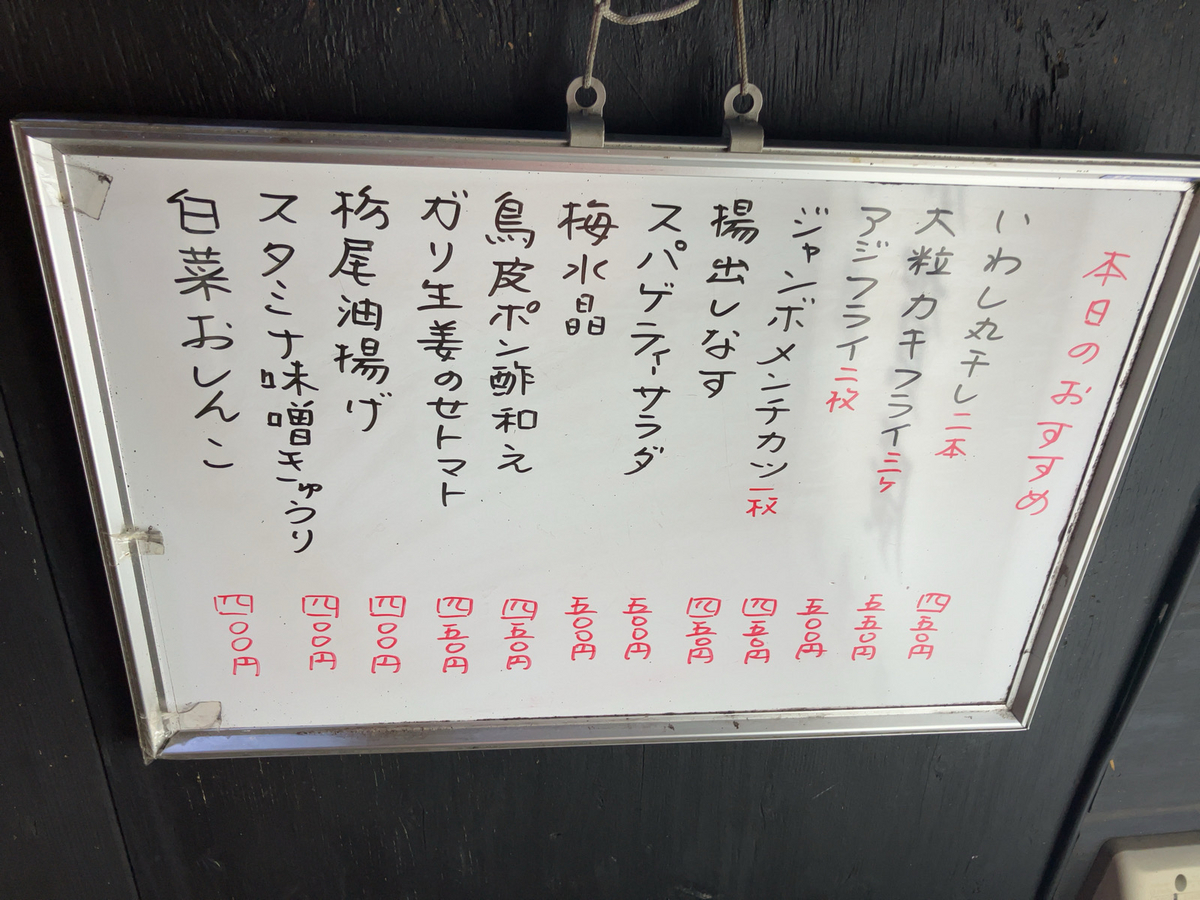 本日のおすすめ
いわし丸干し二本 四五〇円
大粒カキフライ三ヶ 五五〇円
アジフライ二枚 五〇〇円
ジャンボメンチカツ一枚 四五〇円
揚出しなす 四五〇円
スパゲティーサラダ 五〇〇円
梅水晶 五〇〇円
鳥皮ポン酢和え 四五〇円
ガリ生姜のせトマト 四五〇円
栃尾油揚げ 四〇〇円
スタミナ味噌きゅうり 四〇〇円
白菜おしんこ 四〇〇円